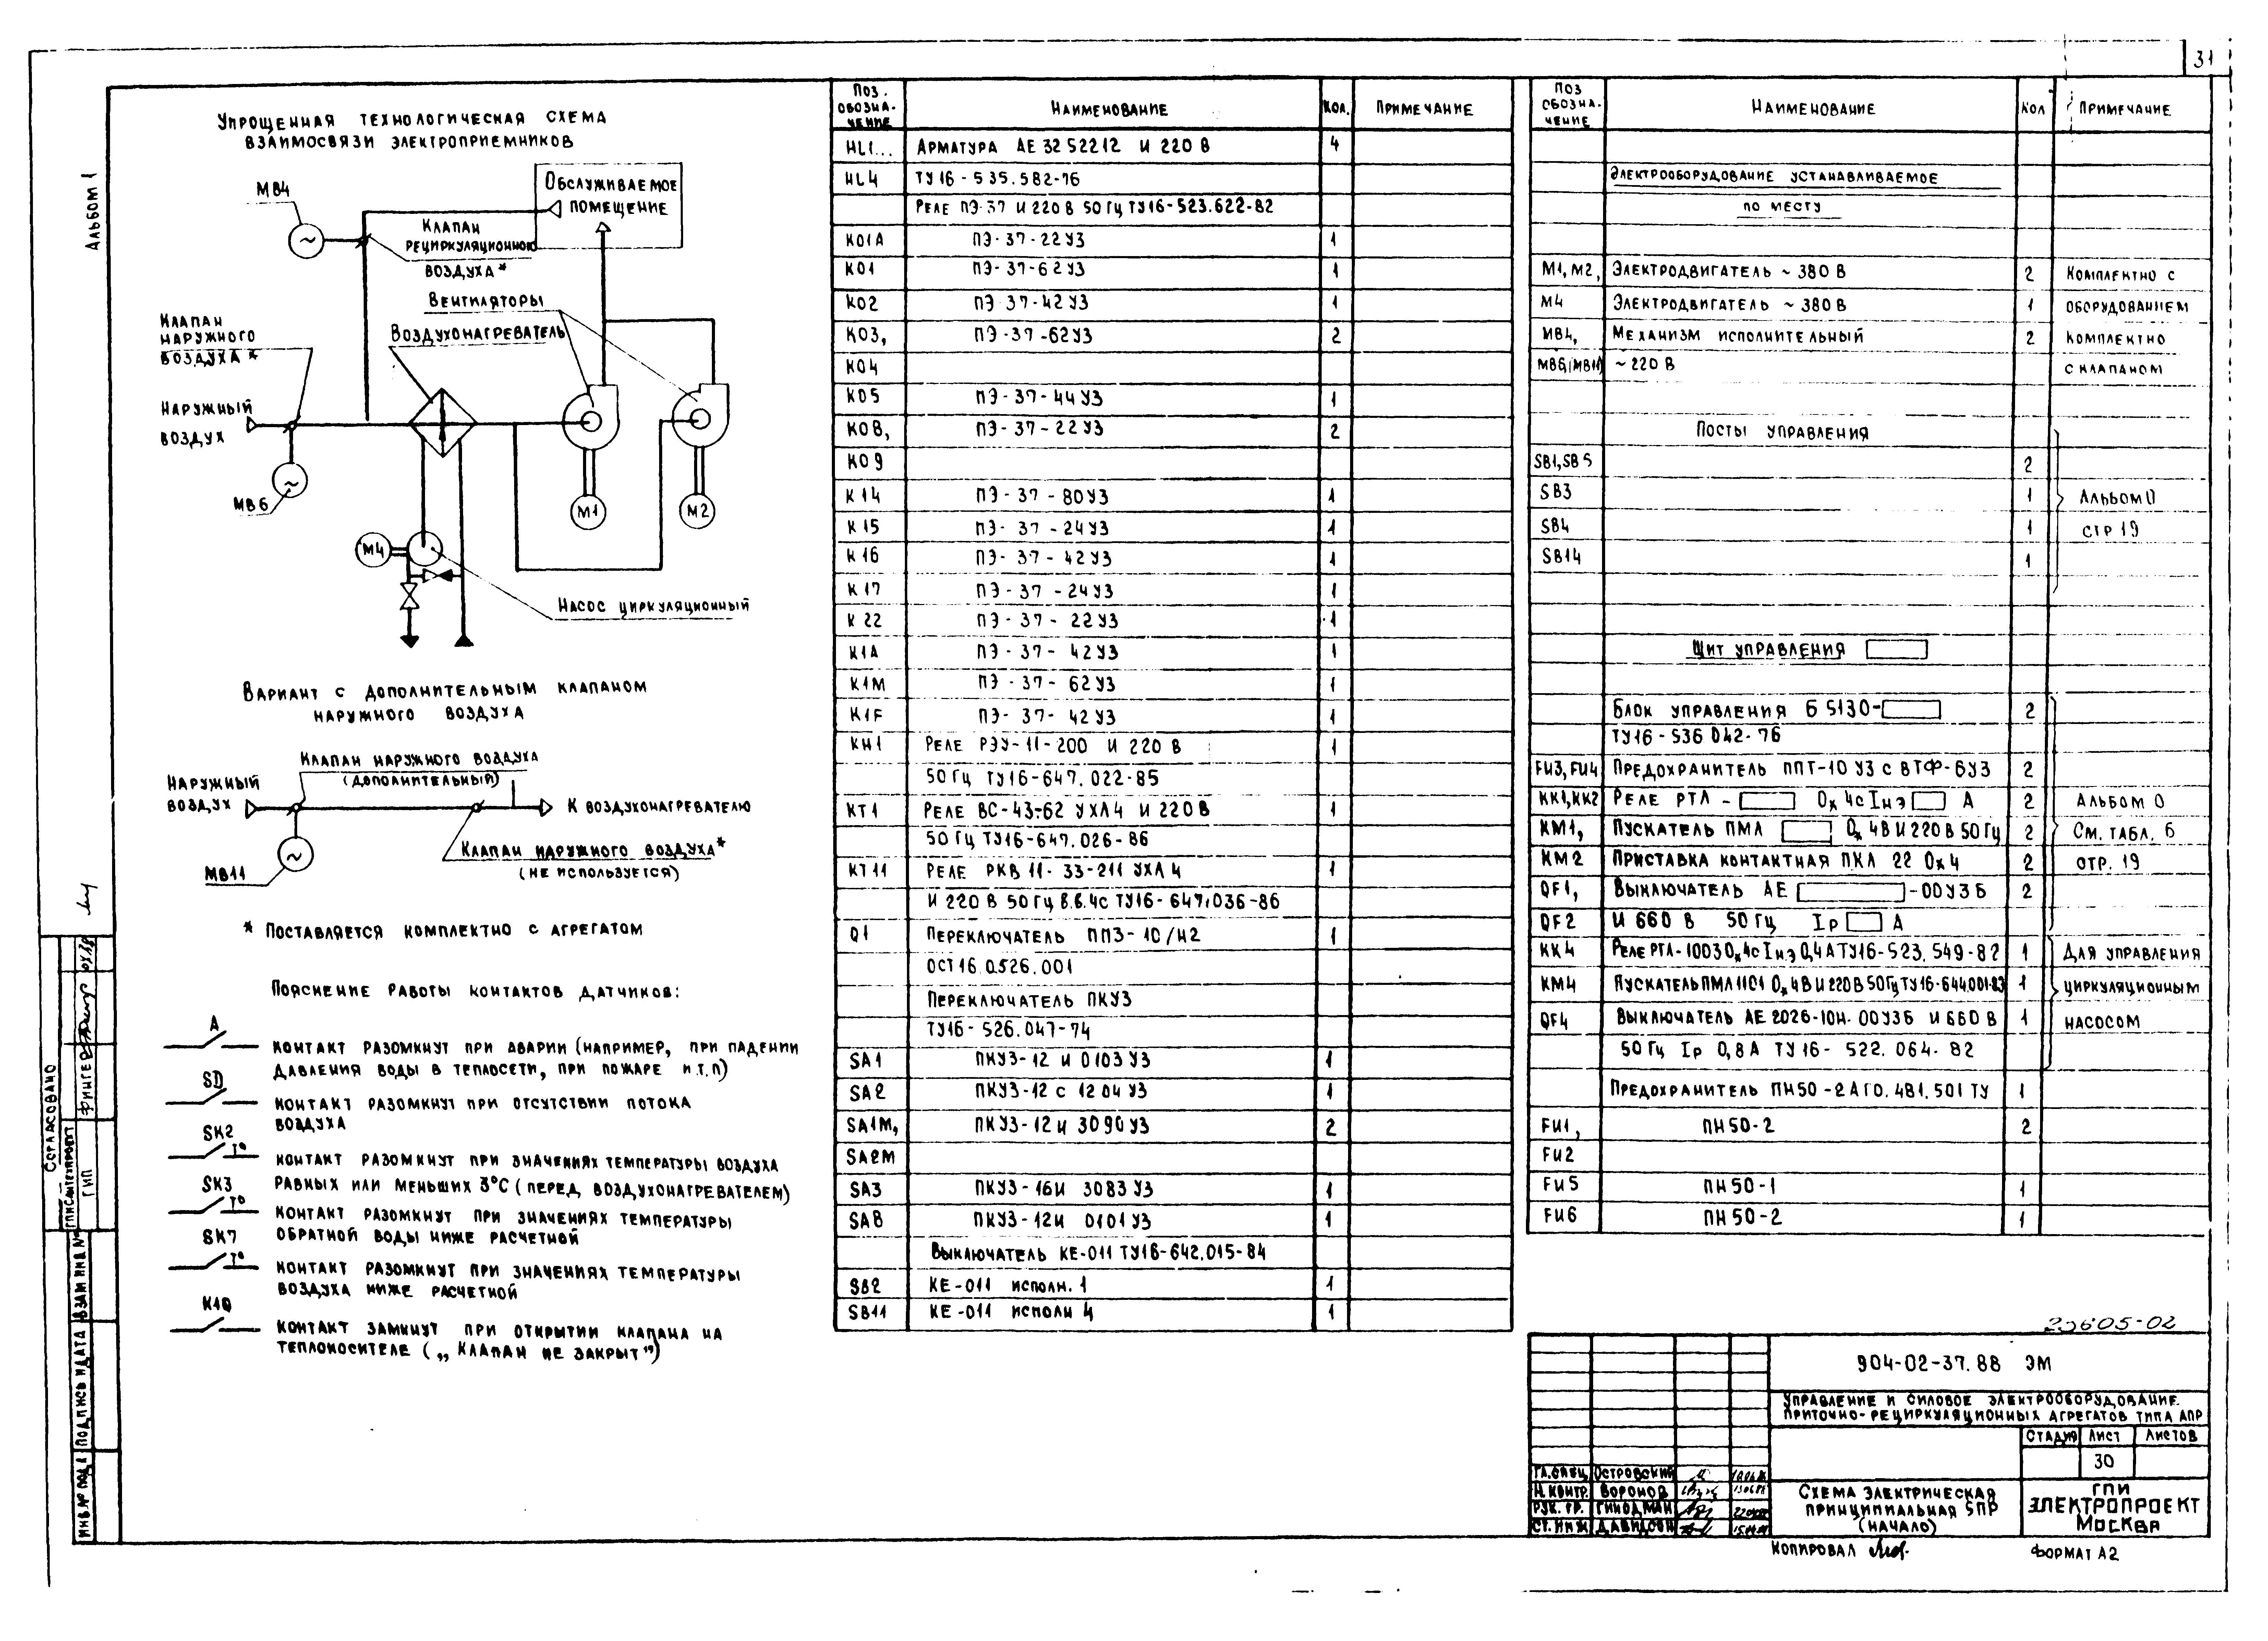 31
Альбом 1
Упрощенная технологическая схема
взаимосвязи электроприемников
МВ4
Обслуживаемое
помещение
Клапан
рециркуляционного
воздуха *
Вентиляторы
Воздухонагреватель
Клапан
наружного
воздуха *
Наружный
воздух
МВ6
М1
М2
М4
Насос циркуляционный
Вариант с дополнительным клапаном
наружного воздуха
Клапан наружного воздуха
(дополнительный)
Наружный
воздух
К воздухонагревателю
Клапан наружного воздуха*
(не используется)
МВ11
* Поставляется комплектно с агрегатом
Пояснение работы контактов датчиков:
А
контакт разомкнут при аварии (например, при падении
давления воды в теплосети, при пожаре и.т.п)
SD
контакт разомкнут при отсутствии потока
воздуха
SK2
T°
контакт разомкнут при значениях температуры воздуха
равных или меньших 3°С (перед воздухонагревателем)
SK3
T°
контакт разомкнут при значениях температуры
обратной воды ниже расчетной
SK7
T°
контакт разомкнут при значениях температуры
воздуха ниже расчетной
К10
контакт замкнут при открытии клапана на
теплоносителе („ клапан не закрыт")
Поз. обозна- чение | Наименование | Кол. | Примечание
HL1... | Арматура АЕ 32 52212 И 220 В | 4
HL4 | ТУ16-535.582-76
Реле ПЭ-37 И 220 В 50 Гц ТУ16-523.622-82
К01А | ПЭ-37-22У3 | 1
К01 | ПЭ-37-62У3 | 1
К02 | ПЭ 37-42У3 | 1
К03, | ПЭ-37-62У3 | 2
К04
К05 | ПЭ-37-44У3 | 1
К08, | ПЭ-37-22У3 | 2
К09
К14 | ПЭ-37-80У3 | 1
К15 | ПЭ-37-24У3 | 1
К16 | ПЭ-37-42У3 | 1
К17 | ПЭ-37-24У3 | 1
К22 | ПЭ-37-22У3 | 1
К1А | ПЭ-37-42У3 | 1
К1М | ПЭ-37-62У3 | 1
К1F | ПЭ-37-42У3 | 1
КН1 | Реле РЭУ-11-200 И 220 В | 1
50 Гц ТУ16-647.022-85
КТ1 | Реле ВС-43-62 УХЛ4 И 220 В | 1
50 Гц ТУ16-647.026-86
КТ11 | Реле РКВ 11-33-211 УХЛ 4 | 1
И 220 В 50 Гц В.В.4с ТУ16-647.036-86
Q1 | Переключатель ПП3-10/Н2 | 1
ОСТ16.0.526.001
Переключатель ПКУ3
ТУ16-526.047-74
SA1 | ПКУ3-12 И 0103 У3 | 1
SA2 | ПКУ3-12 С 1204 У3 | 1
SA1M, | ПКУ3-12И 3090 У3 | 2
SA2M
SA3 | ПКУ3-16И 3083 У3 | 1
SA8 | ПКУ3-12И 0101 У3 | 1
Выключатель КЕ-011 ТУ16-642.015-84
SB2 | КЕ-011 исполн. 1 | 1
SB11 | КЕ-011 исполн 4 | 1
Поз обозна- чение | Наименование | Кол | Примечание
Электрооборудование устанавливаемое
по месту
М1, М2, | Электродвигатель ~ 380 В | 2 | Комплектно с
М4 | Электродвигатель ~ 380 В | 1 | оборудованием
МВ4, | Механизм исполнительный | 2 | Комплектно
МВ6,(МВ11) | ~ 220 В | с клапаном
Посты управления
SB1, SB5 | 2
SB3 | 1 | Альбом 0
SB4 | 1 | стр 19
SB14 | 1
Щит управления
Блок управления Б 5130- | 2
ТУ16-536 042-76
FU3, FU4 | Предохранитель ППТ-10 У3 с ВТФ-6У3 | 2
КК1, КК2 | Реле РТЛ - Ох 4с Iнэ А | 2 | Альбом 0
КМ1, | Пускатель ПМЛ Ох 4В И 220 В 50 Гц | 2 | См. табл. 6
КМ2 | Приставка контактная ПКЛ 22 Ох4 | 2 | отр. 19
QF1, | Выключатель АЕ -00У3Б | 2
QF2 | И 660 В 50 Гц Iр А
КК4 | Реле РТЛ-1003 Ох4с Iнэ 0,4 А ТУ16-523.549-82 | 1 | Для управления
КМ4 | Пускатель ПМЛ1101 Ох4В И 220 В 50 Гц ТУ16-644.001-83 | 1 | циркуляционным
QF4 | Выключатель АЕ 2026-10Н-00У3Б И 660 В | 1 | насосом
50 Гц Iр 0,8 А ТУ16-522.064-82
Предохранитель ПН50-2 АГ0.481.501 ТУ | 1
FU1, | ПН 50-2 | 2
FU2
FU5 | ПН 50-1 | 1
FU6 | ПН 50-2 | 1
Согласовано
ГПИ Сантехпроект
ГИП
Фингер
Инв.№ подл
Подпись и дата
Взам инв №
23605-02
904-02-37.88 ЭМ
Управление и силовое электрооборудование.
приточно-рециркуляционных агрегатов типа АПР
Стадия | Лист | Листов
30
Гл.спец. Островский
Н.контр. Воронов
Рук. гр. Гинодман
Ст. инж Давидсон
Схема электрическая
принципиальная 5ПР
(начало)
ГПИ
Электропроект
Москва
Копировал
Формат А2